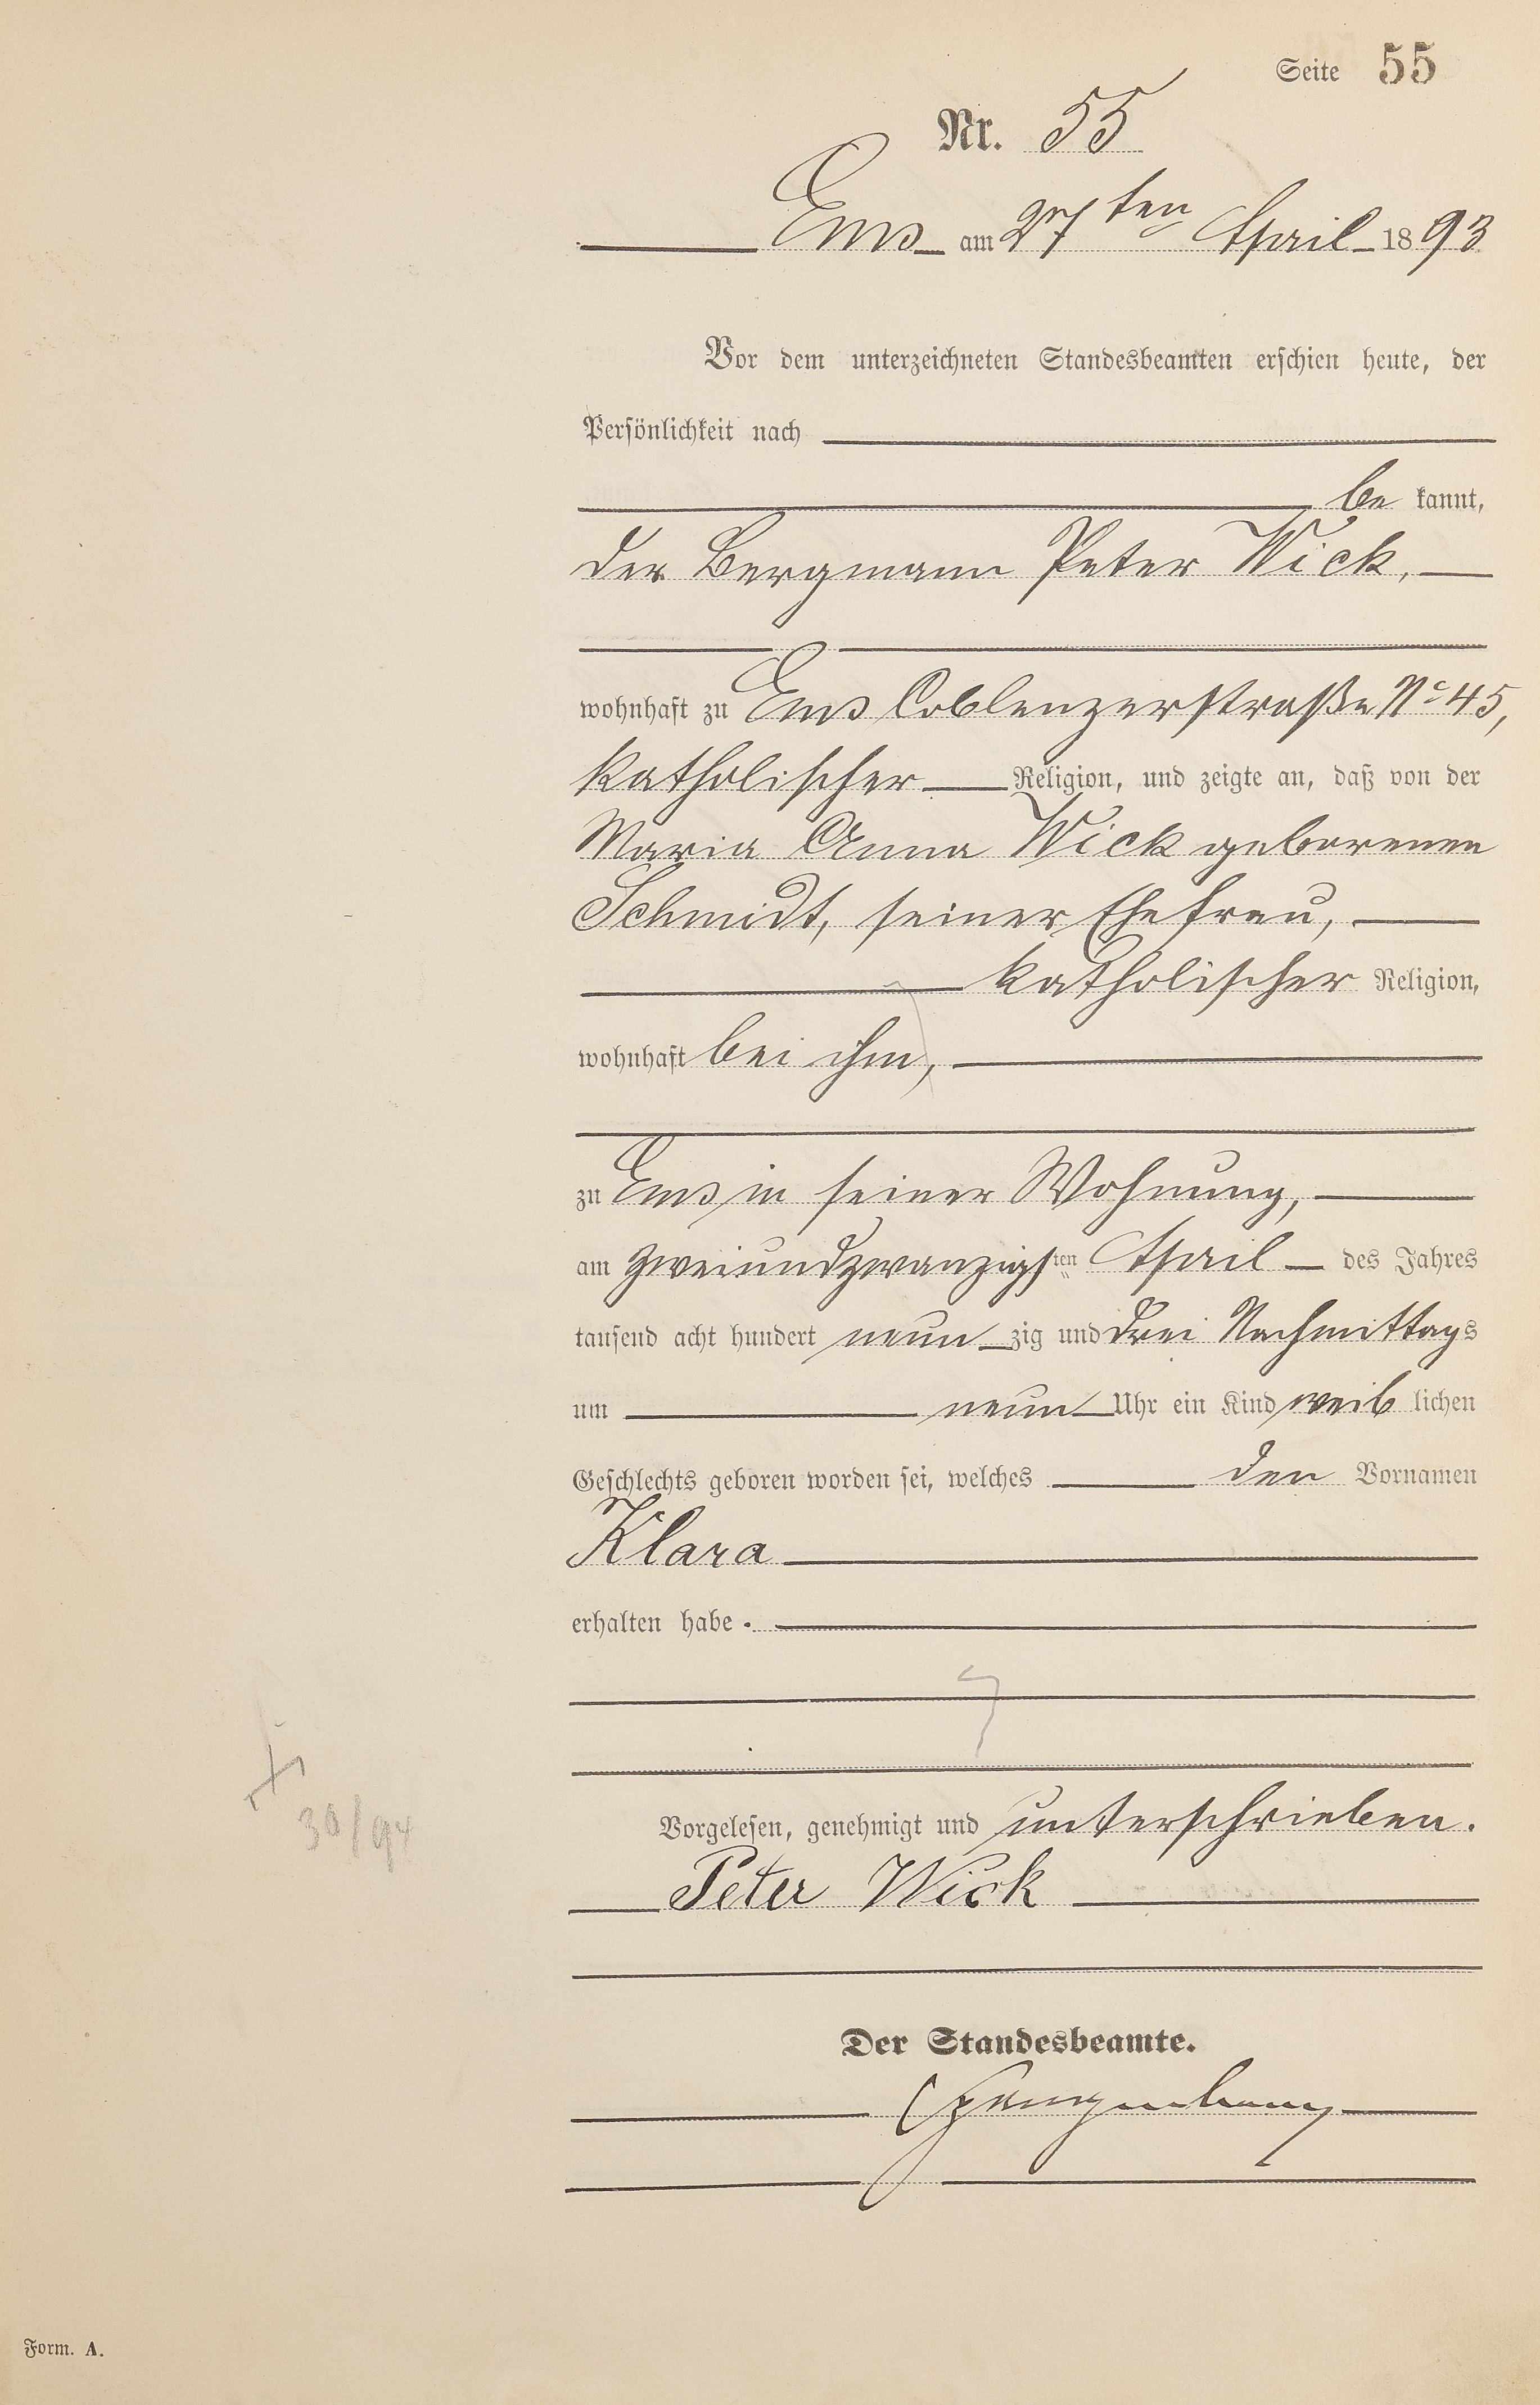 Seite 55
Nr. 55
Ems am 27ten April 1893
Vor dem unterzeichneten Standesbeamten erschien heute, der
Persönlichkeit nach
be kannt,
der Bergmann Peter Wick,
wohnhaft zu Ems Coblenzerstraße No 45,
katholischer Religion, und zeigte an, daß von der
Maria Anna Wick geborenen
Schmidt, seiner Ehefrau,
katholischer Religion,
wohnhaft bei ihm,
zu Ems in seiner Wohnung,
am zweiundzwanzigsten April des Jahres
tausend acht hundert neun zig und drei Nachmittags
um neun Uhr ein Kind weib lichen
Geschlechts geboren worden sei, welches den Vornamen
Klara
erhalten habe.
30/94
Vorgelesen, genehmigt und unterschrieben.
Peter Wick
Der Standesbeamte.
Form. A.